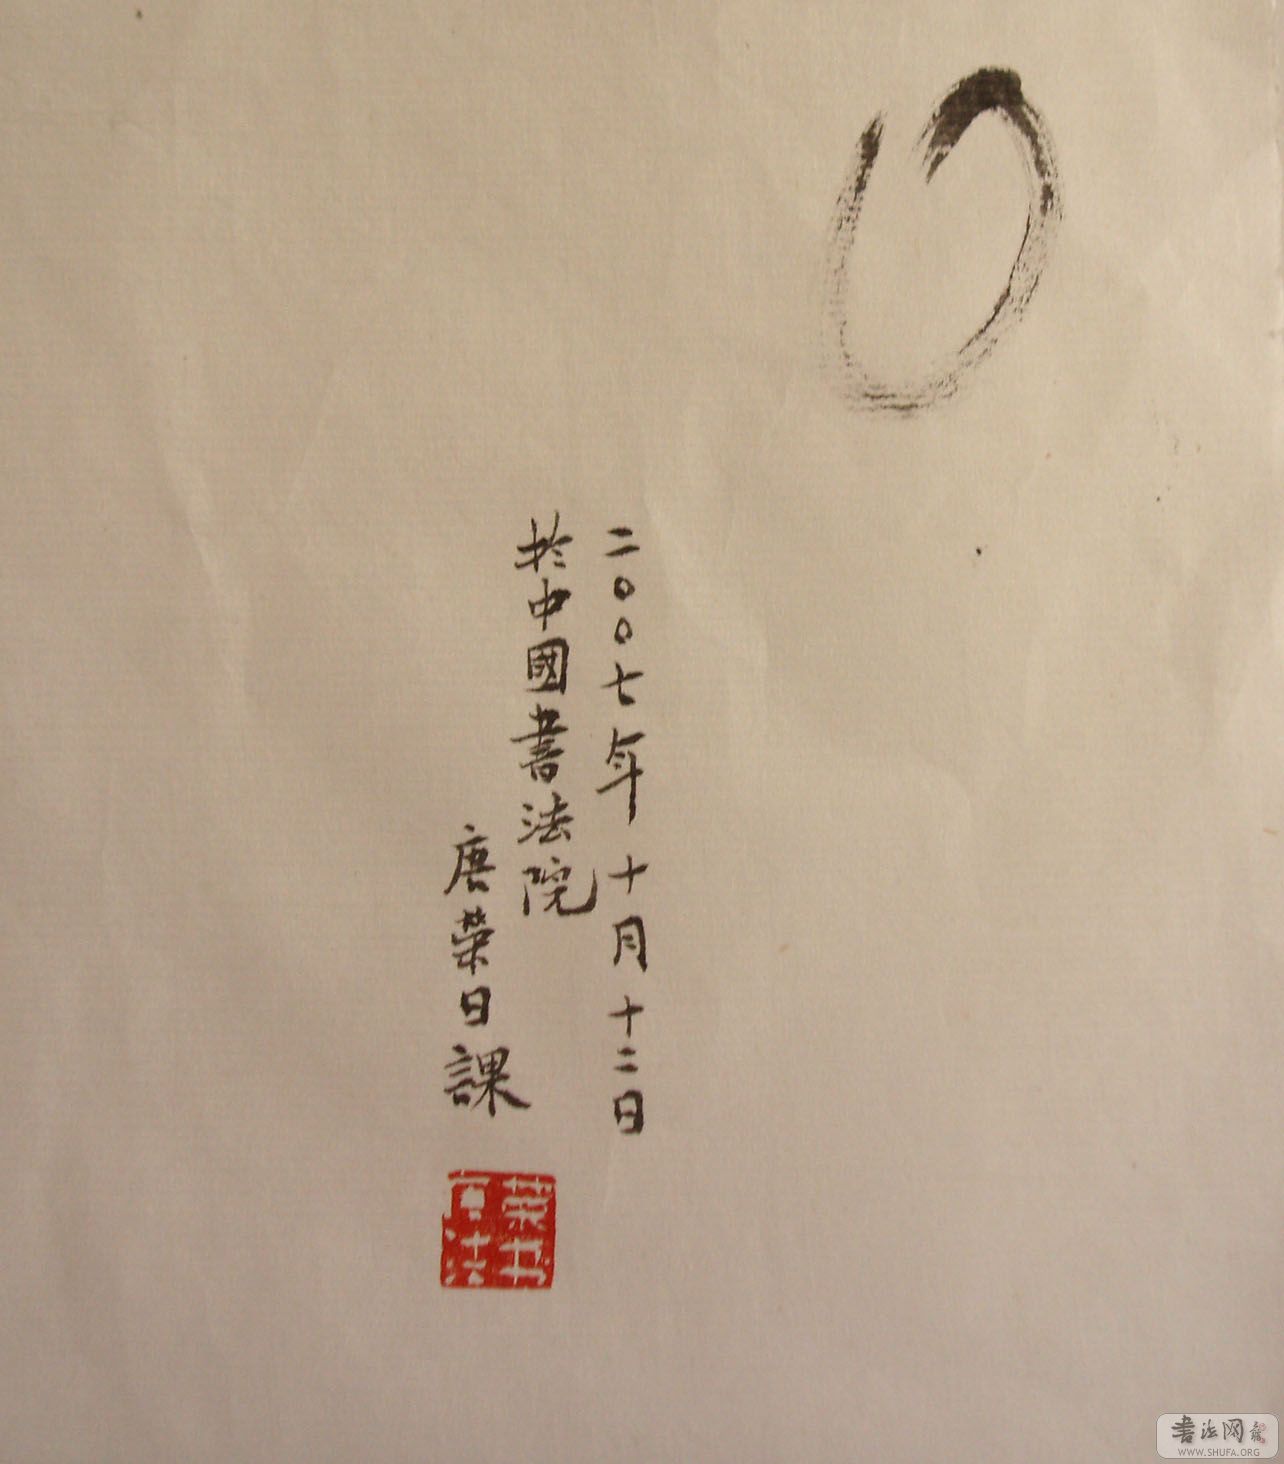 二〇〇七年十月十二日
於中國書法院
唐榮日課
书法网
WWW.SHUFA.ORG